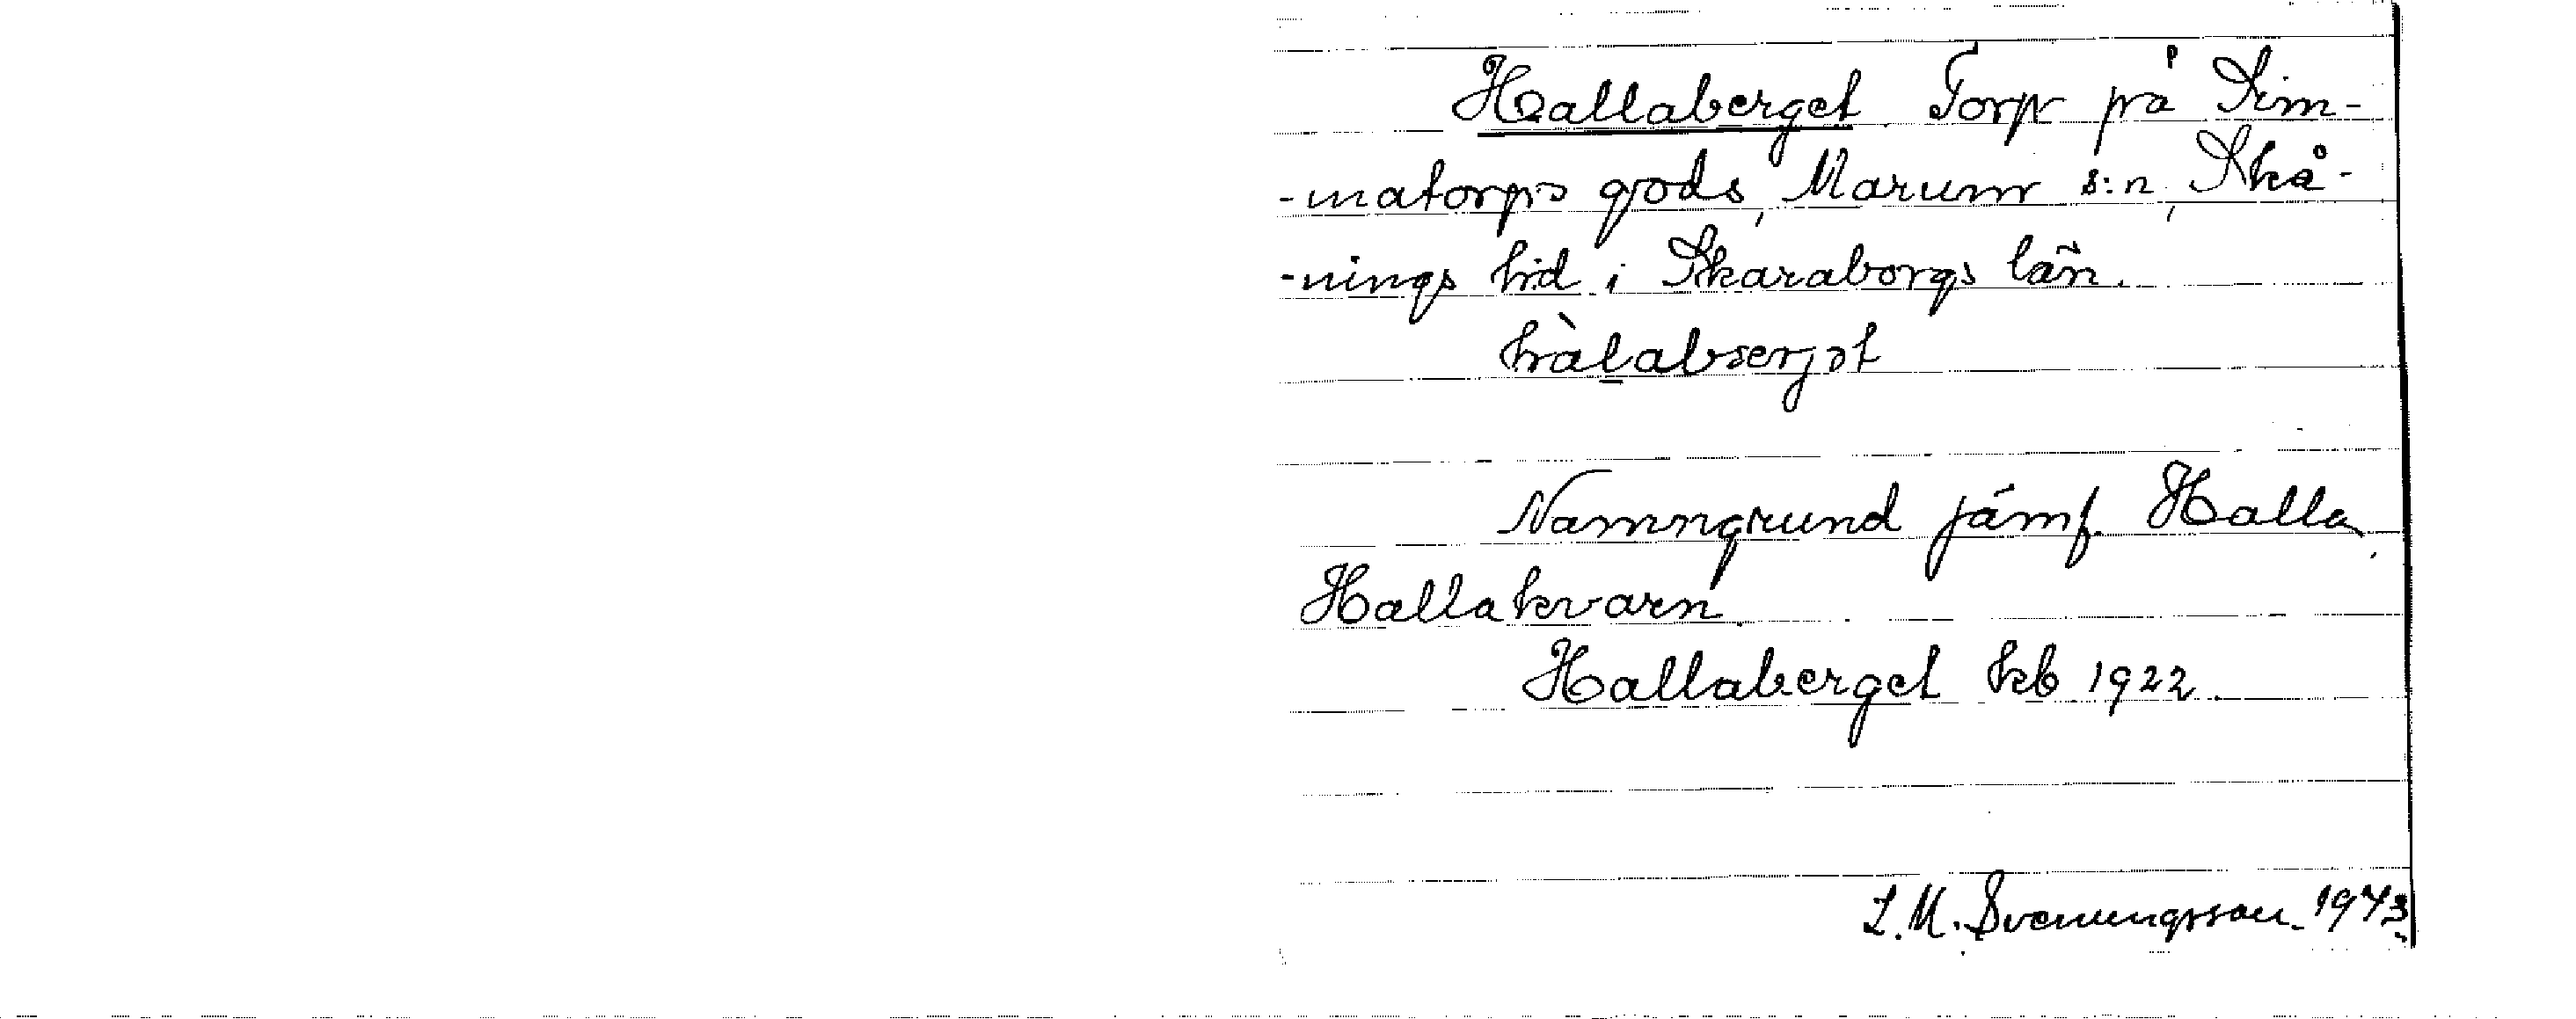 Hallaberget. Torp på Sim-
-matorps gods, Marum s:n, Skå-
-nings hd i Skaraborgs län.
hàl̲abærjət
Namngrund jämf. Halla,
Hallakvarn.
Hallaberget kb 1922.
L. M. Svenungsson 1943.